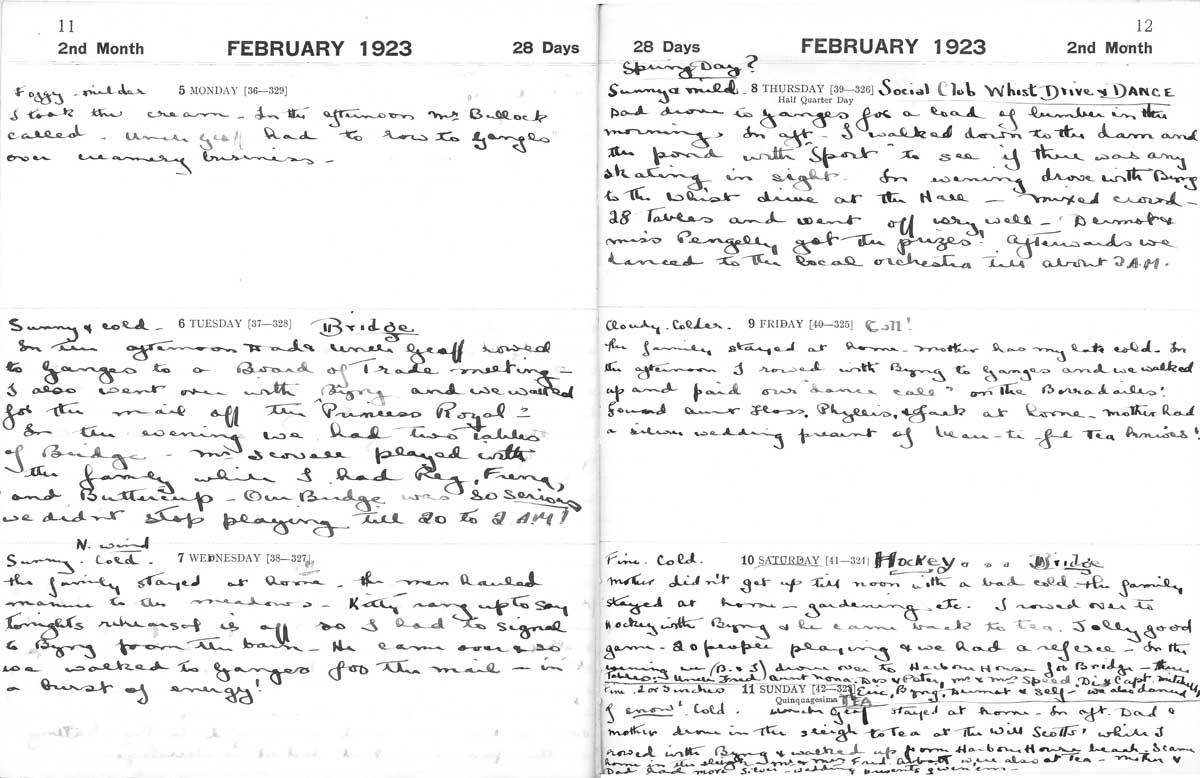 11
2nd Month FEBRUARY 1923 28 Days
Foggy. milder 5 MONDAY [36—329]
I took the cream – In the afternoon Mr Bullock
called. Uncle Geoff had to row to Ganges
over creamery business –
Sunny & cold – 6 TUESDAY [37—328] Bridge
In the afternoon Uncle Geoff rowed
to Ganges to a Board of Trade meeting –
I also went over with Byng and we waited
for the mail off the "Princess Royal" –
In the evening we had two tables
of Bridge – Mr Scovell played with
the family while I had Reg, Frena,
and Buttercup – Our Bridge was so serious
we didn't stop playing till 20 to 2 AM!
N. wind
Sunny. Cold. 7 WEDNESDAY [38—327]
the family stayed at home – the men hauled
manure to the meadows – Kitty rang up to say
tonights rehearsal is off so I had to signal
to Byng from the barn – He came over & so
we walked to Ganges for the mail – in
a burst of energy!
12
28 Days FEBRUARY 1923 2nd Month
Spring Day?
Sunny & mild. 8 THURSDAY [39—326] Social Club Whist Drive & DANCE
Half Quarter Day
Dad drove to Ganges for a load of lumber in the
morning. In aft – I walked down to the dam and
the pond with "Sport" to see if there was any
skating in sight. In evening drove with Byng
to the Whist drive at the Hall – mixed crowd –
28 Tables and went off very well – Dermot &
Miss Pengelly got the prizes! Afterwards we
danced to the local orchestra till about 2 AM.
Cloudy. Colder. 9 FRIDAY [40—325] Call!
the family stayed at home – mother has my late cold – In
the afternoon I rowed with Byng to Ganges and we walked
up and paid our "dance call" on the Borradailes!
Found Aunt Floss, Phyllis, & Jack at home – mother had
a silver wedding present of beau-ti-ful tea knives!
Fine. Cold. 10 SATURDAY [41—324] Hockey . . . Bridge
Mother didn't get up till noon with a bad cold – the family
stayed at home – gardening etc. I rowed over to
Hockey with Byng & he came back to tea. Jolly good
game – 20 people playing & we had a referee – In the
evening we (B. & I) drove over to Harbour House for Bridge – three
tables. Uncle Fred, Aunt Nona, Des & Peter, Mr & Mrs Speed, Di & Capt. Mitchell,
Fine. 2 or 3 inches 11 SUNDAY [42—323] Eric, Byng, Dermot & self – we also danced
Quinquagesima TEA
of snow! Cold. Uncle Geoff stayed at home – In aft. Dad &
mother drove in the sleigh to tea at the Will Scotts' while I
rowed with Byng & walked up from Harbour House beach. I came
home in the sleigh. Mr & Mrs were also at tea – Mother &
Dad had more silver-wedding presents given em –